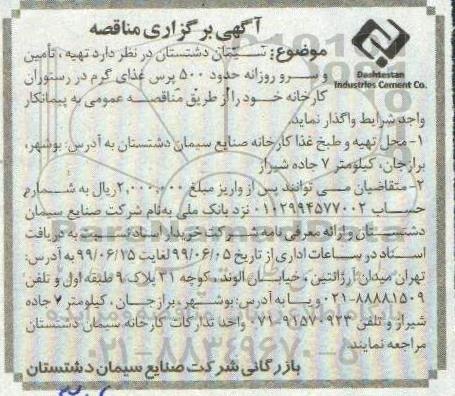 آگهی برگزاری مناقصه
Dashtestan
Industries Cement Co.
موضوع: سیمان دشتستان در نظر دارد تهیه، تأمین
و سرو روزانه حدود ۵۰۰ پرس غذای گرم در رستوران
کارخانه خود را از طریق مناقصه عمومی به پیمانکار
واجد شرایط واگذار نماید.
۱- محل تهیه و طبخ غذا کارخانه صنایع سیمان دشتستان به آدرس: بوشهر،
برازجان، کیلومتر ۷ جاده شیراز
۲- متقاضیان می توانند پس از واریز مبلغ ۲,۰۰۰,۰۰۰ ریال به شماره
حساب ۰۱۰۲۹۹۴۵۷۷۰۰۲ نزد بانک ملی به‌نام شرکت صنایع سیمان
دشتستان و ارائه معرفی نامه شرکت خریدار اسناد نسبت به دریافت
اسناد در ساعات اداری از تاریخ ۹۹/۰۶/۰۵ لغایت ۹۹/۰۶/۱۵ به آدرس:
تهران میدان آرژانتین، خیابان الوند، کوچه ۳۱ پلاک ۹ طبقه اول و تلفن
۰۲۱-۸۸۸۸۱۵۰۹ و یا به آدرس: بوشهر، برازجان، کیلومتر ۷ جاده
شیراز و تلفن ۰۷۱-۹۱۵۷۰۹۲۳ واحد تدارکات کارخانه سیمان دشتستان
مراجعه نمایند.
۰۲۱-۸۸۳۴۹۶۷۰-۵
بازرگانی شرکت صنایع سیمان دشتستان